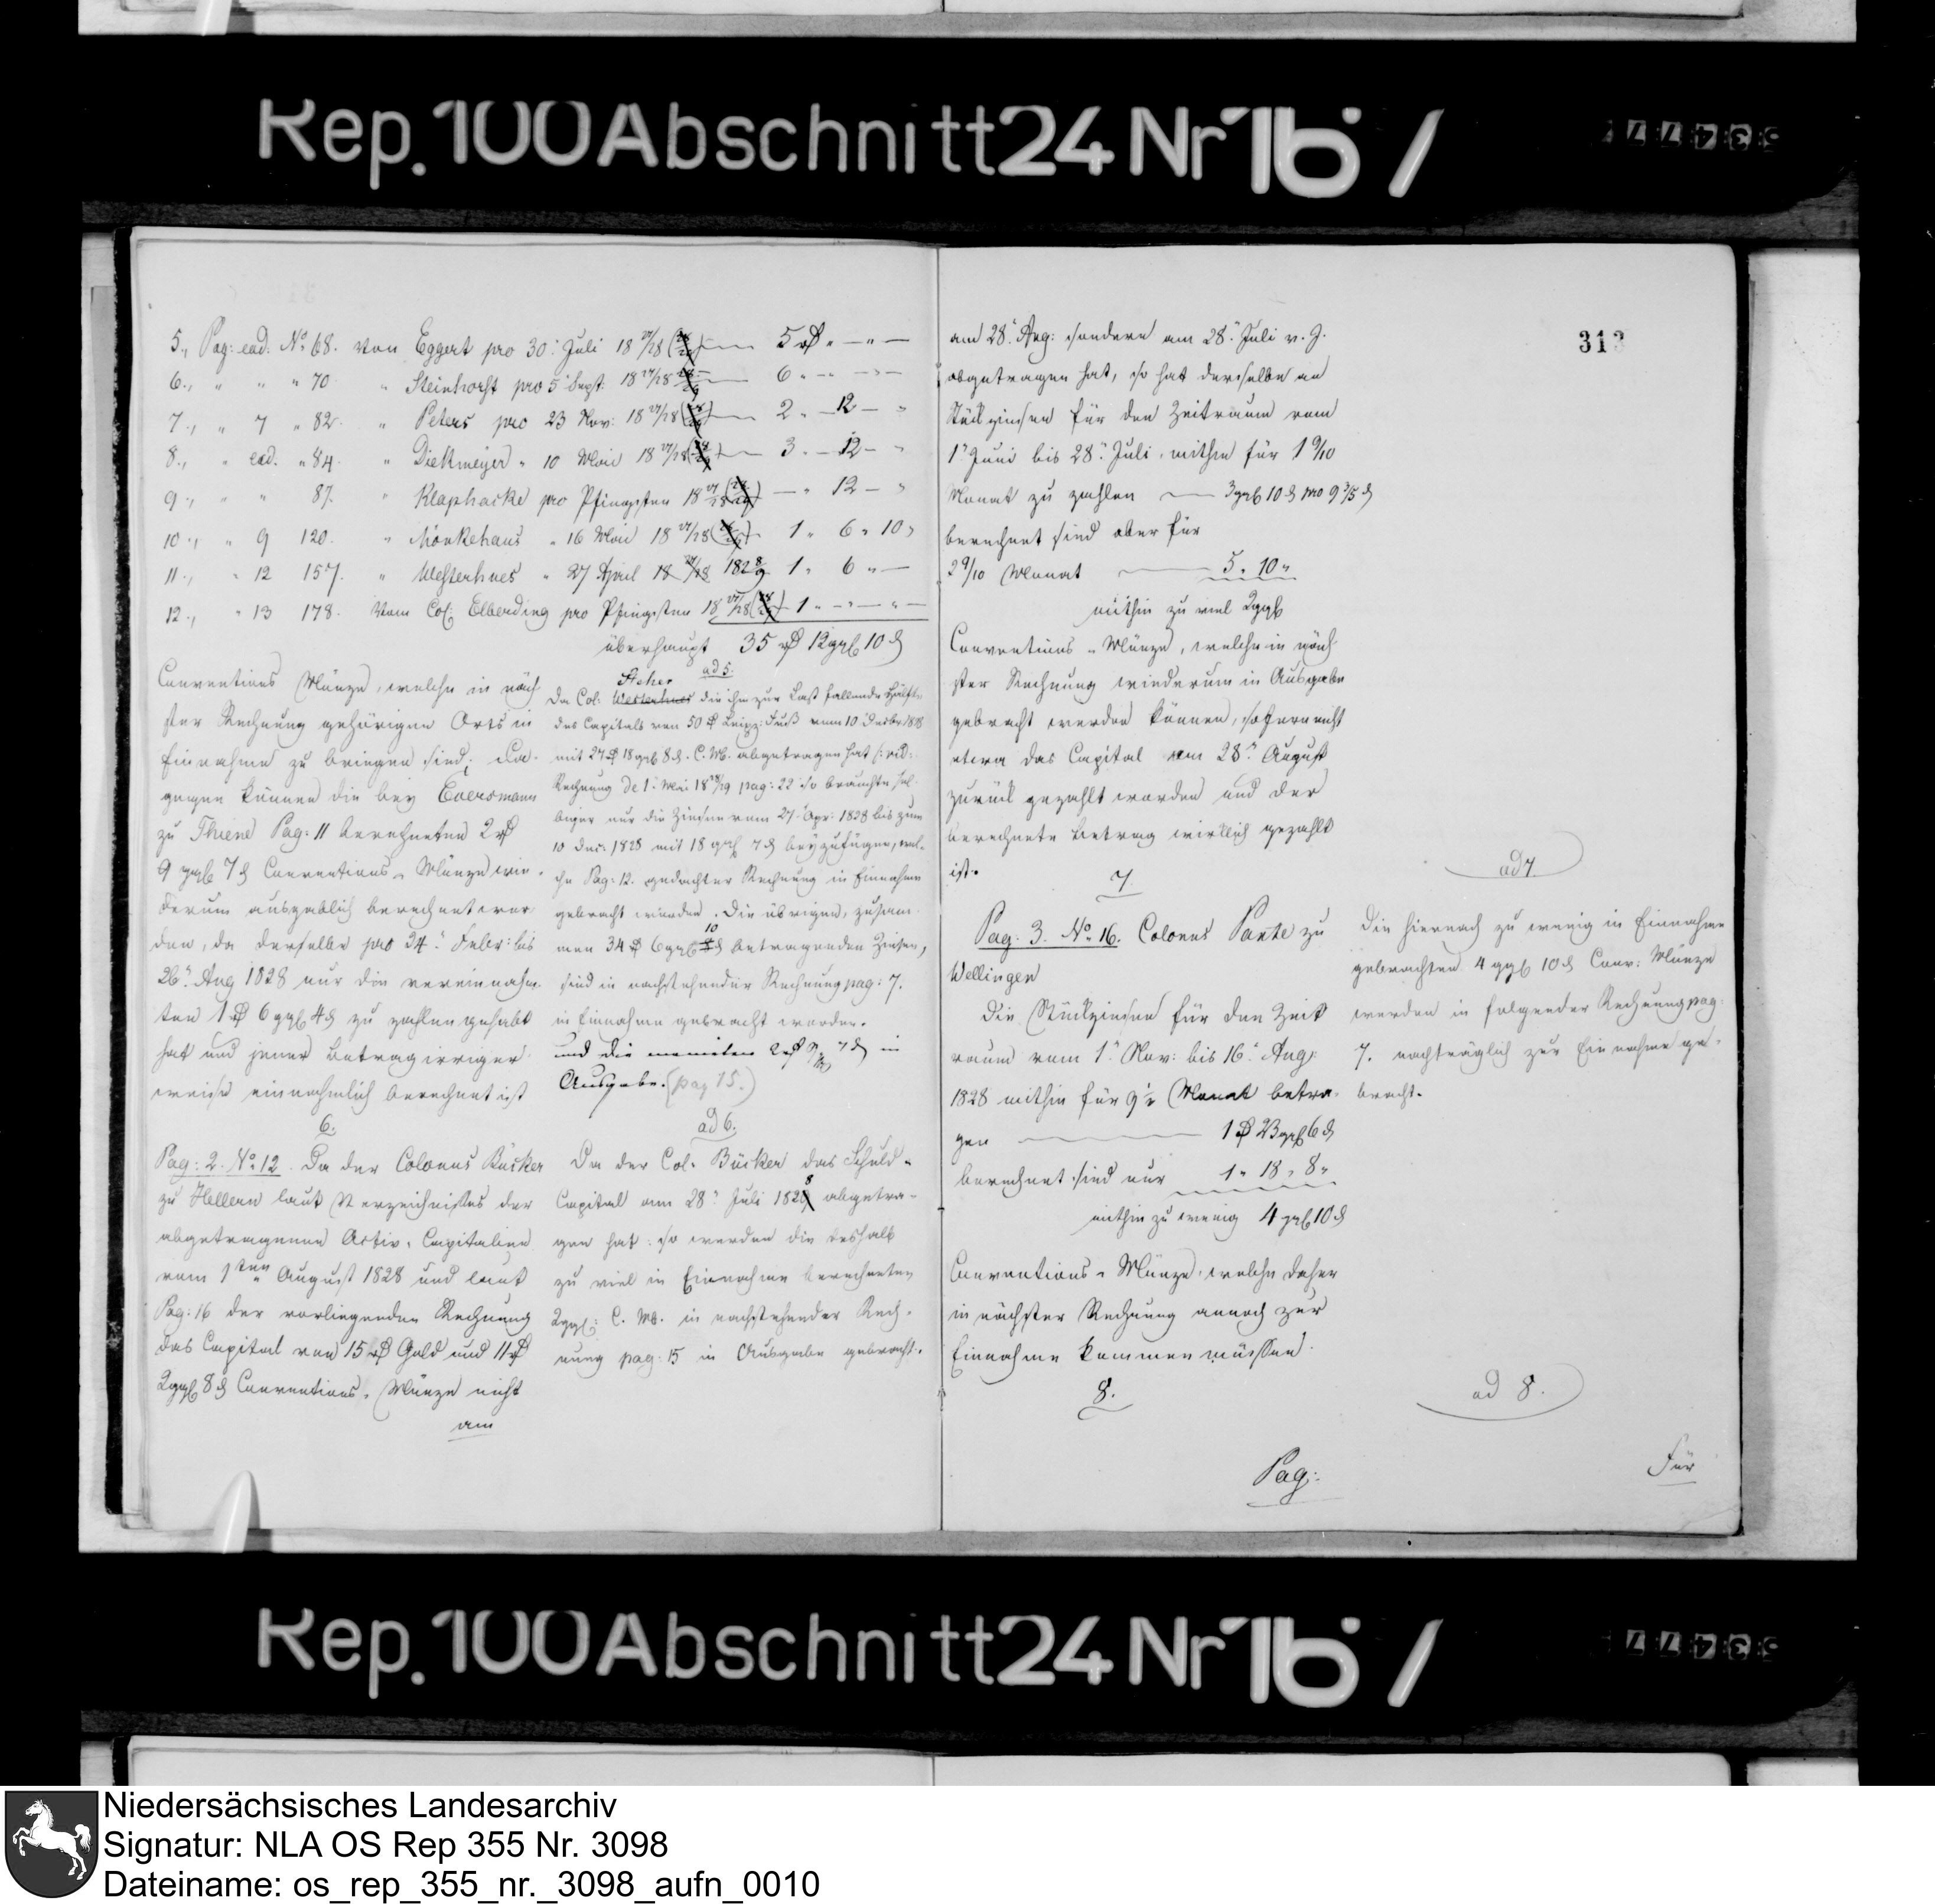 Rep. 100 Abschnitt 24 Nr 16 /
53477
5., Pag: ead. No 68. von Eggert pro 30. Juli 18 27/28 (28/29) — 5 rthl „ — „ —
6., „ „ „ 70. „ Steinhorst pro 5 Sept: 18 27/28 — 6 „ — „ —
7., „ 7 „ 82. „ Peters pro 23 Nov: 18 27/28 (28/29) — 2 „ — 12 — „
8., „ ead. „ 84. „ Diekmeyer „ 10 Mai 18 27/28 (28/29) — 3 „ — 12 — „
9., „ „ 87. „ Klaphacke pro Pfingsten 18 27/28 (28/29) — „ 12 — „
10., „ 9 120. „ Mönkehaus „ 16 Mai 18 27/28 (28/29) 1 „ 6 „ 10 „
11., „ 12 157. „ Westerhues „ 27 April 18 27/28 1828/9 1 „ 6 „ —
12., „ 13 178. Vom Col: Elberding pro Pfingsten 18 27/28 (28/29) 1 „ — „ — „ —
überhaupt 35 rthl 12 ggl 10 d
Conventions Münze, welche in näch
ster Rechnung gehörigen Orts in
Einnahme zu bringen sind; da-
gegen können die bey Eversmann
zu Thiene Pag: 11 berechneten 2 rthl
9 ggl 7 d Conventions-Münze wie-
derum ausgablich berechnet wer
den, da derselbe pro 24. Febr: bis
26. Aug 1828 nur die vereinnahm-
ten 1 rthl 6 ggl 4 d zu zahlen gehabt
hat und jener Betrag irriger
weise einnahmlich berechnet ist
6.
Pag: 2. No 12. Da der Colonus Bücker
zu Hellern laut Verzeichnisses der
abgetragenen Activ-Capitalien
vom 1sten August 1828 und laut
Pag: 16 der vorliegenden Rechnung
das Capital von 15 rthl Gold und 11 rthl
2 ggl 8 d Conventions-Münze nicht
am
ad 5.
Acher
Da Col: Westerhues die ihm zur Last fallende Hälfte
des Capitals von 50 rthl Leipz: Fuß vom 10 Decbr 1828
mit 27 rthl 18 ggl 8 d. C. M. abgetragen hat (: vid:
Rechnung de 1. Mai 18 28/29 pag: 22 so brauchte sel-
biger nur die Zinsen vom 27. Apr: 1828 bis zum
10 Dec: 1828 mit 18 ggl 7 d beyzufügen, wel-
che Pag: 12. gedachter Rechnung in Einnahme
gebracht wurden. Die übrigen, zusam-
men 34 rthl 6 ggl 10 d betragenden Zinsen,
sind in nachstehender Rechnung pag: 7.
in Einnahme gebracht worden.
und die 2 rthl 9 ggl 7 d in
Ausgabe. (pag 15.)
ad 6.
Da der Col. Bücker das Schuld-
Capital am 28. Juli 1828 abgetra-
gen hat: so werden die deshalb
zu viel in Einnahme berechneten
2 ggl: C. M. in nachstehender Rech-
nung pag: 15 in Ausgabe gebracht.
313
am 28. Aug: sondern am 28. Juli v. J.
abgetragen hat, so hat derselbe an
Stückzinsen für den Zeitraum vom
1. Juni bis 28. Juli, mithin für 1 9/10
Monat zu zahlen — 3 ggl 10 d 9 3/5 d
berechnet sind aber für
2 9/10 Monat — 5 „ 10 „
mithin zu viel 2 ggl
Conventions-Münze, welche in näch
ster Rechnung wiederum in Ausgabe
gebracht werden können, sofern nicht
etwa das Capital am 28. August
zurück gezahlt worden und der
berechnete Betrag wirklich gezahlt
ist.
7.
Pag: 3. No 16. Colonus Pante zu
Wellingen
Die Stückzinsen für den Zeit
raum vom 1. Nov: bis 16. Aug:
1828 mithin für 9 1/2 Monat betra-
gen — 1 rthl 23 ggl 6 d
berechnet sind nur 1 „ 18 „ 8 „
mithin zu wenig 4 ggl 10 d
Conventions-Münze, welche daher
in nächster Rechnung annoch zur
Einnahme kommen müssen.
8.
Pag:
ad 7
Die hiernach zu wenig in Einnahme
gebrachten 4 ggl 10 d Conv: Münze
werden in folgender Rechnung pag:
7. nachträglich zur Einnahme ge-
bracht.
ad 8.
Für
Rep. 100 Abschnitt 24 Nr 16 /
53477
Niedersächsisches Landesarchiv
Signatur: NLA OS Rep 355 Nr. 3098
Dateiname: os_rep_355_nr._3098_aufn_0010